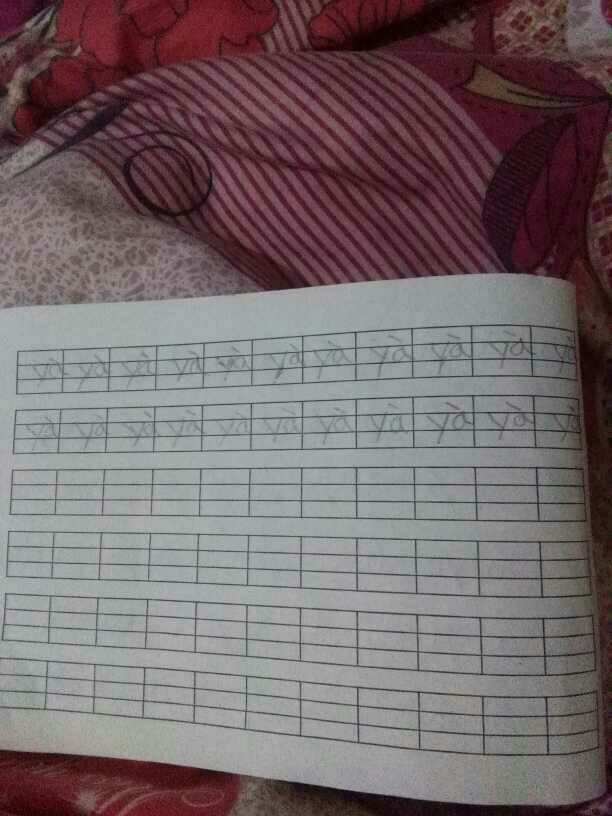 yà yà yà yà yà yà yà yà yà yà yà
yà yà yà yà yà yà yà yà yà yà yà